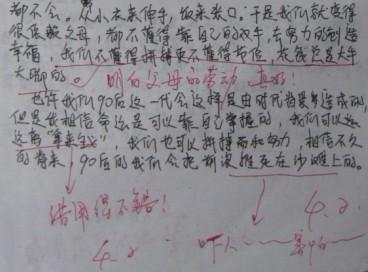 都不会。从小衣来伸手，饭来张口。于是我们就变得
很依赖父母，都不懂得靠自己的双手，去努力的创造
幸福，我们不懂得拼搏更不懂得节俭，花钱总是大手
大脚的。
明白父母的劳动 真好！
也许我们90后这一代会这样是由时代背景造成的，
但是我相信命运是可以靠自己掌握的，我们可以远
离"寄生"，我们也可以拼搏而和努力，相信不久
的将来，90后的我们会把前浪推死在沙滩上的。
借用得不错！
4.2.
4.2 吓人